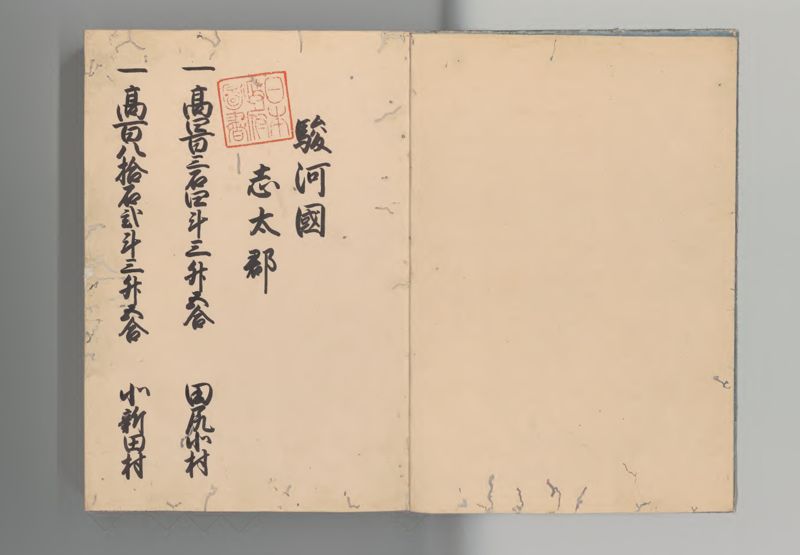 駿河國
志太郡
日本
政府
圖書
一高四百三石四斗三升五合
田尻北村
一高百八拾石弐斗三升五合
北新田村